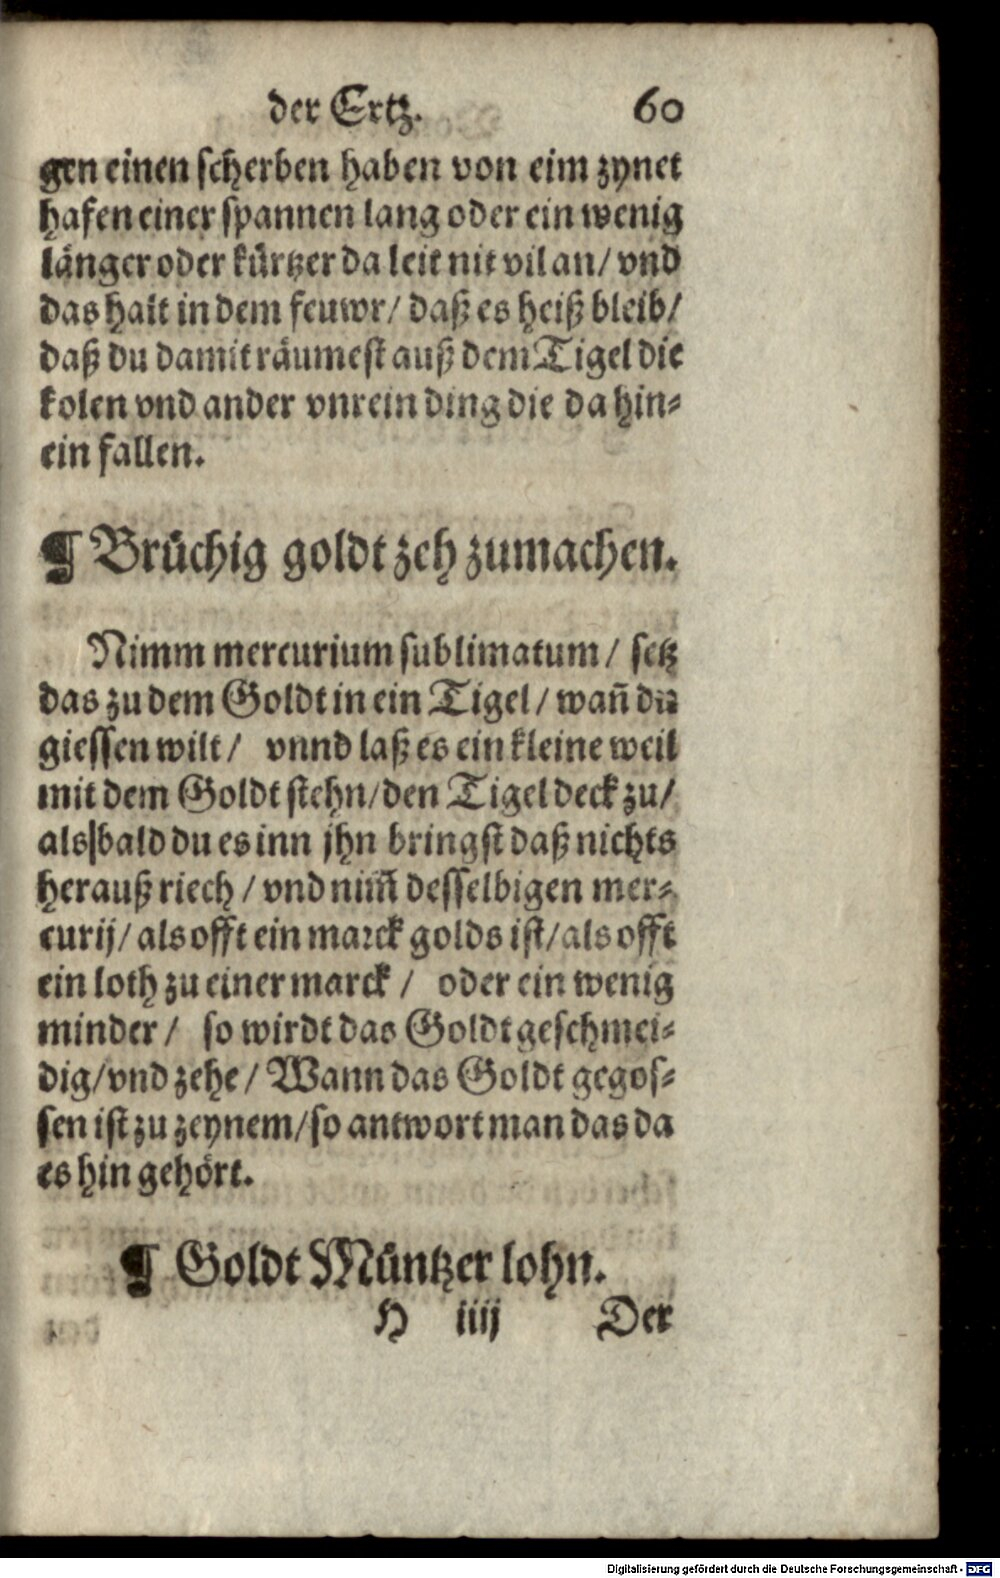 der Ertz. 60
gen einen scherben haben von eim zynet
hafen einer spannen lang oder ein wenig
länger oder kürtzer da leit nit vil an/ vnd
das halt in dem feuwr/ daß es heiß bleib/
daß du damit räumest auß dem Tigel die
kolen vnd ander vnrein ding die da hin⸗
ein fallen.
¶ Brüchig goldt zeh zumachen.
Nimm mercurium sublimatum/ setz
das zu dem Goldt in ein Tigel/ wañ du
giessen wilt/ vnnd laß es ein kleine weil
mit dem Goldt stehn/den Tigel deck zu/
als|bald du es inn jhn bringst daß nichts
herauß riech/ vnd nim̃ desselbigen mer⸗
curij/ als offt ein marck golds ist/als offt
ein loth zu einer marck/ oder ein wenig
minder/ so wirdt das Goldt geschmei⸗
dig/vnd zehe/ Wann das Goldt gegos⸗
sen ist zu zeynem/so antwort man das da
es hin gehört.
¶ Goldt Müntzer lohn.
H iiij Der
Digitalisierung gefördert durch die Deutsche Forschungsgemeinschaft - DFG